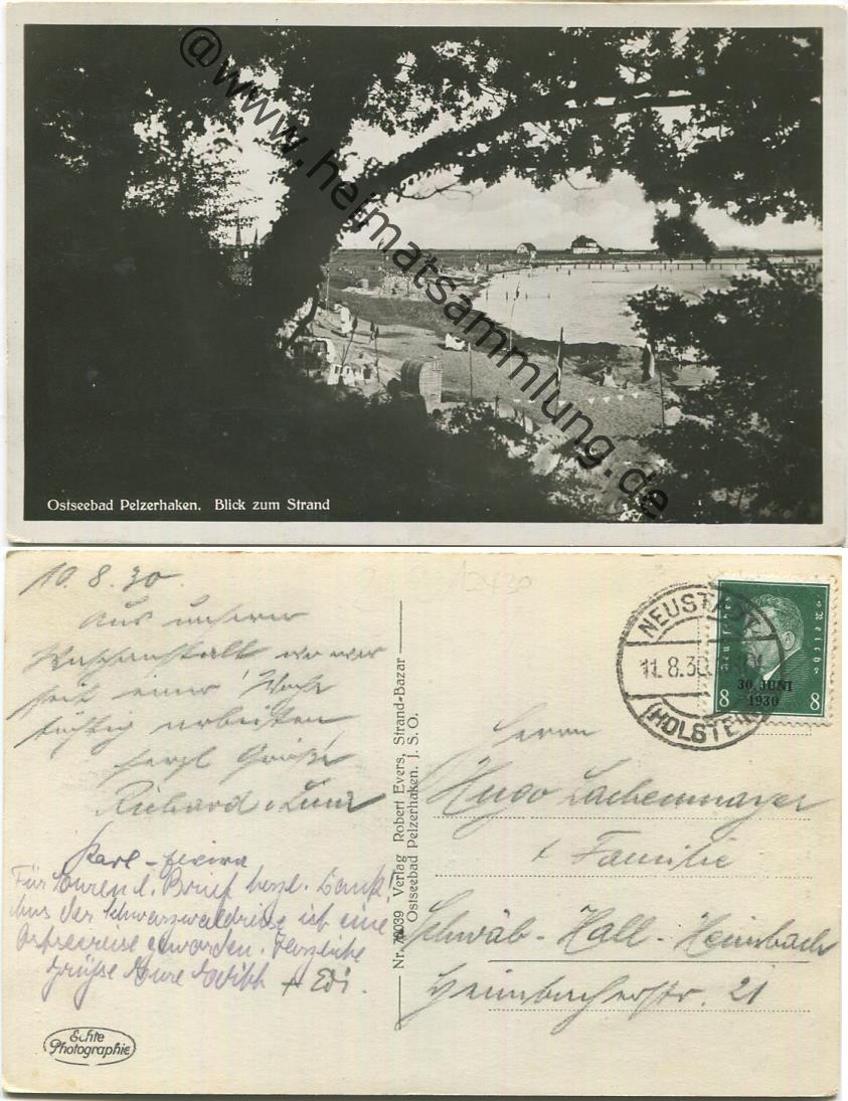 @www.heimatsammlung.de
Ostseebad Pelzerhaken. Blick zum Strand
10.8.30.
Aus unserer
Waschanstalt wo wir
seit einer Woche
tüchtig arbeiten
herzl Grüße
Richard
Karl - Elvira
Für Euren l. Brief herzl. Dank!
Aus der Schwarzwaldreise ist eine
Ostseereise geworden. Herzliche
Grüsse Eure + Edi.
Echte
Photographie
Nr. Verlag Robert Evers, Strand-Bazar
Ostseebad Pelzerhaken. J. S. O.
NEUSTADT
11.8.30.
(HOLSTEIN)
Deutsches Reich
30. JUNI
1930
8 8
Herrn
Hugo Lachenmayer
+ Familie
Schwäb - Hall - Heimbach
Heimbacherstr. 21